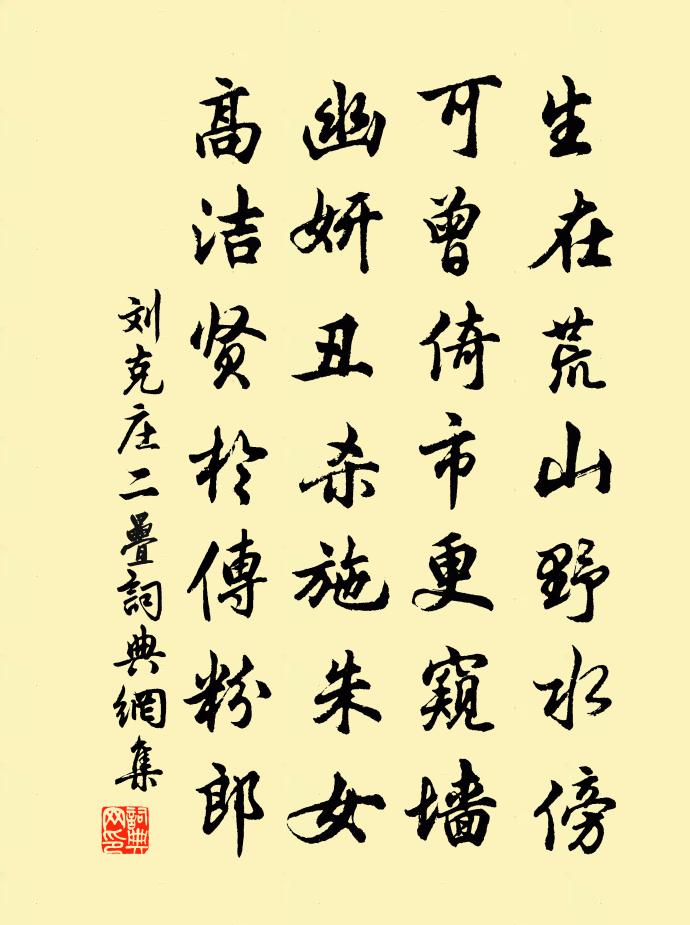 生在荒山野水傍
可曾倚市更窺墙
幽妍丑杀施朱女
高洁贤於傅粉郎
刘克庄二疊詞典網集
詞典
网印